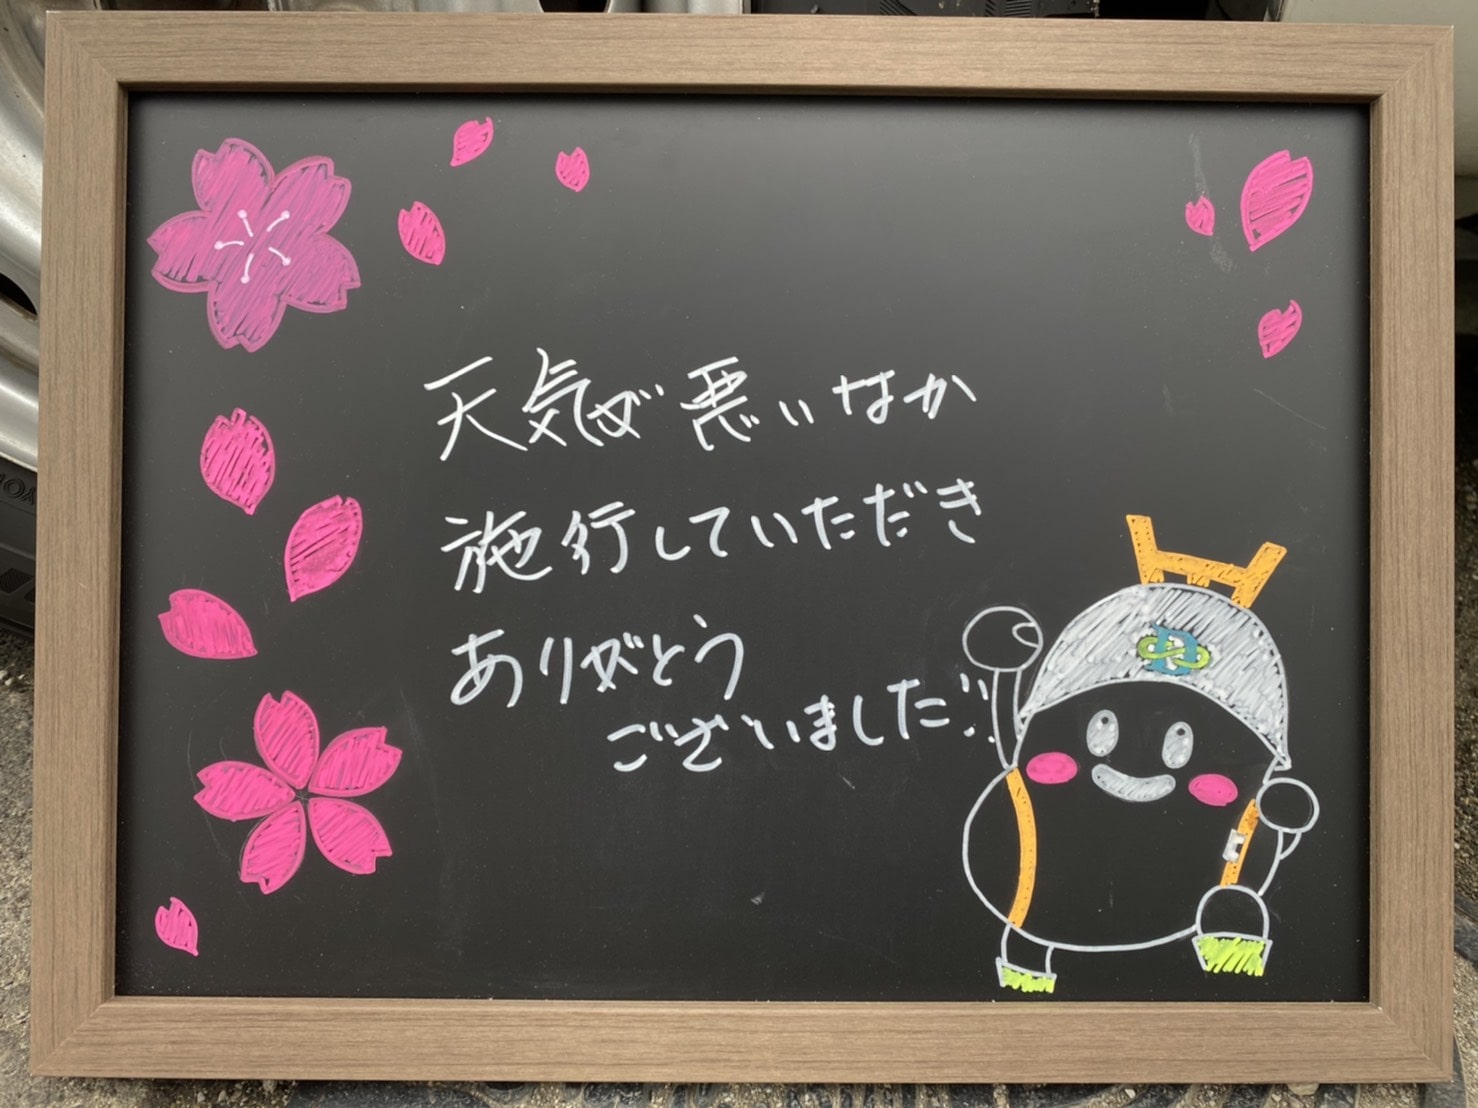 天気が悪いなか
施行していただき
ありがとう
ございました!!